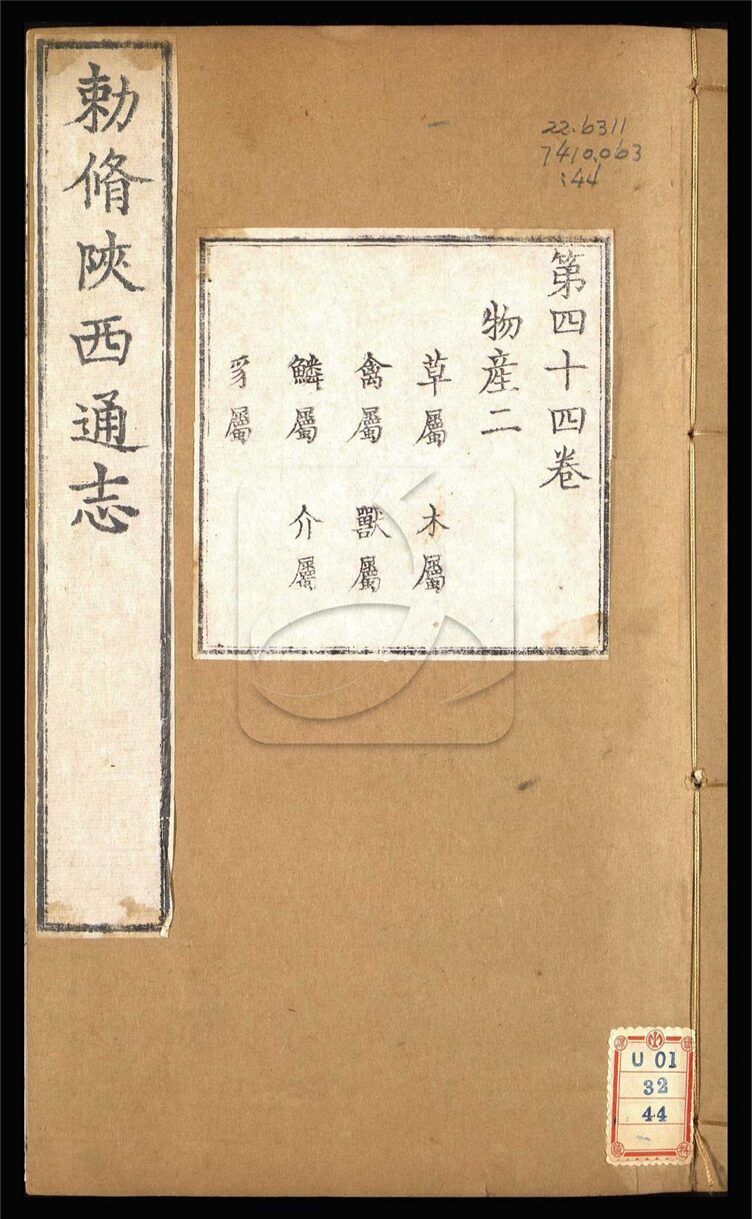 勅脩陜西通志
第四十四卷
物産二
草屬 木屬
禽屬 獸屬
鱗屬 介屬
豸屬
22.6311
7410.063
:44
U 01
32
44